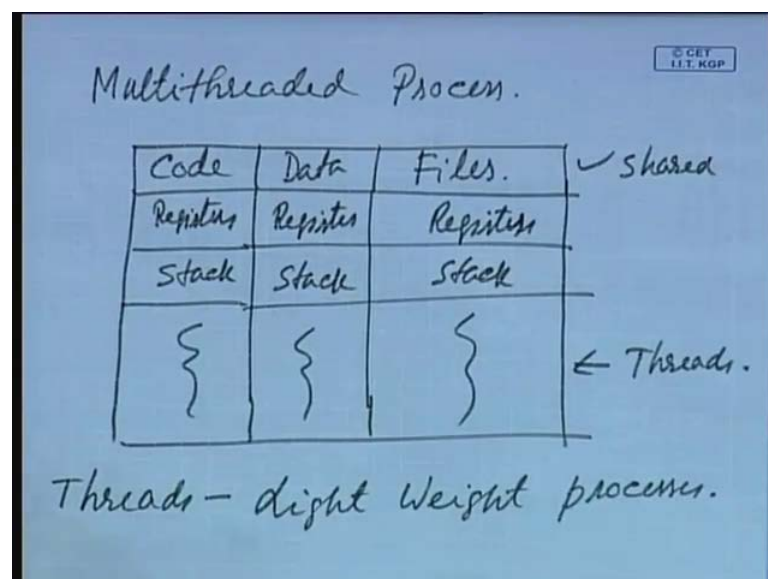 © CET
I.I.T. KGP
Multithreaded Process.
Code Data Files. ✓ Shared
Registers Register Registers
Stack Stack Stack
← Threads.
Threads - Light Weight processes.